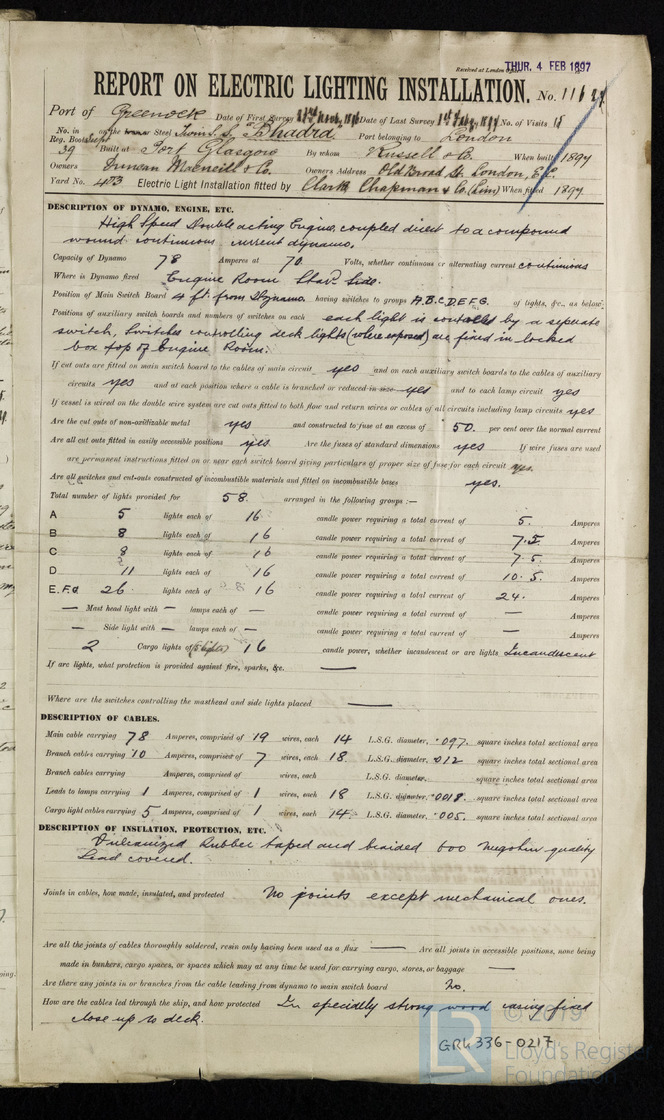 Received at London Office
THUR. 4 FEB 1897
REPORT ON ELECTRIC LIGHTING INSTALLATION. No.
Port of Greenock Date of First Survey Date of Last Survey No. of Visits
No. in Reg. Book on the Steel S.S. "Bhadra" Port belonging to London
39 Built at Port Glasgow By whom Russell & Co. When built 1897
Owners Duncan Macneill & Co. Owners Address Old Broad St. London, E.C.
Yard No. 403 Electric Light Installation fitted by Clark Chapman & Co. (Lim) When fitted 1897
DESCRIPTION OF DYNAMO, ENGINE, ETC.
High Speed Double acting Engine, coupled direct to a compound
wound continuous current dynamo.
Capacity of Dynamo 78 Amperes at 70. Volts, whether continuous or alternating current continuous
Where is Dynamo fixed Engine Room Star. Side.
Position of Main Switch Board 4 ft. from Dynamo. having switches to groups A.B.C.D.E.F.G. of lights, &c., as below
Positions of auxiliary switch boards and numbers of switches on each each light is controlled by a seperate
switch, Switches controlling deck lights (where exposed) are fixed in locked
box top of Engine Room.
If cut outs are fitted on main switch board to the cables of main circuit yes and on each auxiliary switch boards to the cables of auxiliary
circuits yes and at each position where a cable is branched or reduced in size yes and to each lamp circuit yes
If vessel is wired on the double wire system are cut outs fitted to both flow and return wires or cables of all circuits including lamp circuits yes
Are the cut outs of non-oxidizable metal yes and constructed to fuse at an excess of 50. per cent over the normal current
Are all cut outs fitted in easily accessible positions yes. Are the fuses of standard dimensions yes If wire fuses are used
are permanent instructions fitted on or near each switch board giving particulars of proper size of fuse for each circuit yes.
Are all switches and cut-outs constructed of incombustible materials and fitted on incombustible bases yes.
Total number of lights provided for 58. arranged in the following groups :—
A 5 lights each of 16 candle power requiring a total current of 5. Amperes
B 8 lights each of 16 candle power requiring a total current of 7.5. Amperes
C 8 lights each of 16 candle power requiring a total current of 7.5. Amperes
D 11 lights each of 16 candle power requiring a total current of 10.5. Amperes
E.F.G. 26 lights each of 16 candle power requiring a total current of 24. Amperes
— Mast head light with — lamps each of — candle power requiring a total current of — Amperes
— Side light with — lamps each of — candle power requiring a total current of — Amperes
2 Cargo lights of 16 candle power, whether incandescent or arc lights Incandescent
If arc lights, what protection is provided against fire, sparks, &c. —
Where are the switches controlling the masthead and side lights placed —
DESCRIPTION OF CABLES.
Main cable carrying 78 Amperes, comprised of 19 wires, each 14 L.S.G. diameter, .097. square inches total sectional area
Branch cables carrying 10 Amperes, comprised of 7 wires, each 18. L.S.G. diameter, .012 square inches total sectional area
Branch cables carrying Amperes, comprised of wires, each L.S.G. diameter, square inches total sectional area
Leads to lamps carrying 1 Amperes, comprised of 1 wires, each 18 L.S.G. diameter, .0018. square inches total sectional area
Cargo light cables carrying 5 Amperes, comprised of 1 wires, each 14. L.S.G. diameter, .005. square inches total sectional area
DESCRIPTION OF INSULATION, PROTECTION, ETC.
Vulcanized Rubber taped and braided 600 Megohm quality
Lead covered.
Joints in cables, how made, insulated, and protected No joints except mechanical ones.
Are all the joints of cables thoroughly soldered, resin only having been used as a flux — Are all joints in accessible positions, none being
made in bunkers, cargo spaces, or spaces which may at any time be used for carrying cargo, stores, or baggage —
Are there any joints in or branches from the cable leading from dynamo to main switch board No.
How are the cables led through the ship, and how protected In specially strong wood casing fixed
close up to deck.
© 2019
Lloyd's Register
Foundation
LR
GRK336-0217